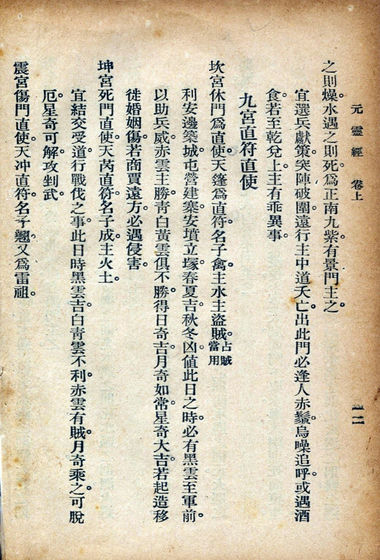 元靈經 卷上
之則燥水遇之則死爲正南九紫有景門主之
宜選兵獻策突陣破圍遠行主中道夭亡出此門必逢人赤鬚烏噪追呼或遇酒
食若至乾兌上主有乖異事
九宮直符直使
坎宮休門爲直使天蓬爲直符名子禽主水主盜賊占賊當用
利安邊築城屯營建寨安墳立塚春夏吉秋冬凶値此日之時必有黑雲至軍前
以助兵威赤雲王勝青白黃雲俱不勝得日奇吉月奇如常星奇大吉若起造移
徙婚姻傷若商買遠方必遇侵害
坤宮死門直使天芮直符名子成主火土
宜結交受道行戰伐之事此日時黑雲吉白青雲不利赤雲有賊月奇乘之可脫
厄星奇可解攻剉武
震宮傷門直使天冲直符名子翹又爲雷祖